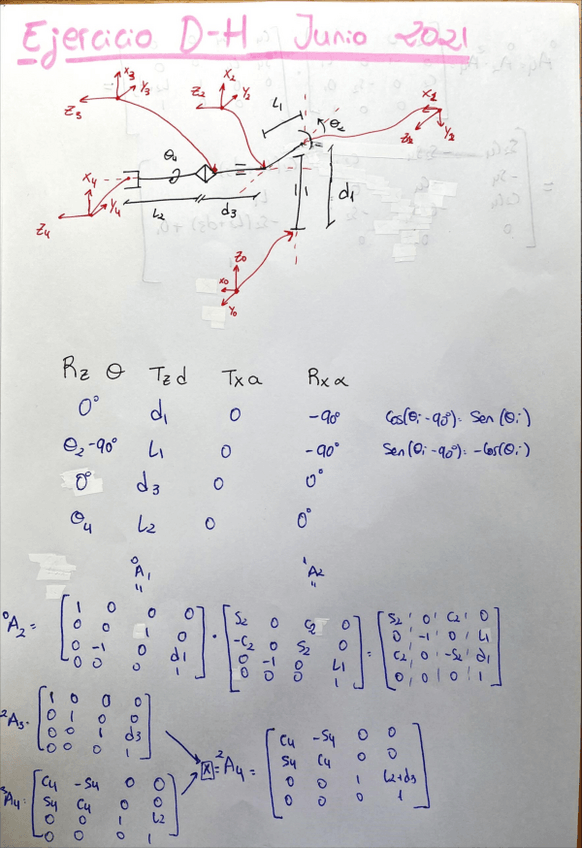 Ejercicio D-H Junio 2021
X3 Y3 Z3
X2 Y2 Z2
L1
θ2
X1 Z1 Y1
θ4
X4 Y4 Z4
L2 d3 d1
Z0 X0 Y0
Rz θ Tz d Tx a Rx α
0° d1 0 -90° Cos(θi-90°) = Sen(θi)
θ2-90° L1 0 -90° Sen(θi-90°) = -Cos(θi)
0° d3 0 0°
θ4 L2 0 0°
0A1 1A2
" "
0A2 =
1 0 0 0
0 0 1 0
0 -1 0 d1
0 0 0 1
·
S2 0 C2 0
-C2 0 S2 0
0 -1 0 L1
0 0 0 1
=
S2 0 C2 0
0 -1 0 L1
C2 0 -S2 d1
0 0 0 1
2A3 =
1 0 0 0
0 1 0 0
0 0 1 d3
0 0 0 1
X = 2A4 =
C4 -S4 0 0
S4 C4 0 0
0 0 1 L2+d3
0 0 0 1
3A4 =
C4 -S4 0 0
S4 C4 0 0
0 0 1 L2
0 0 0 1